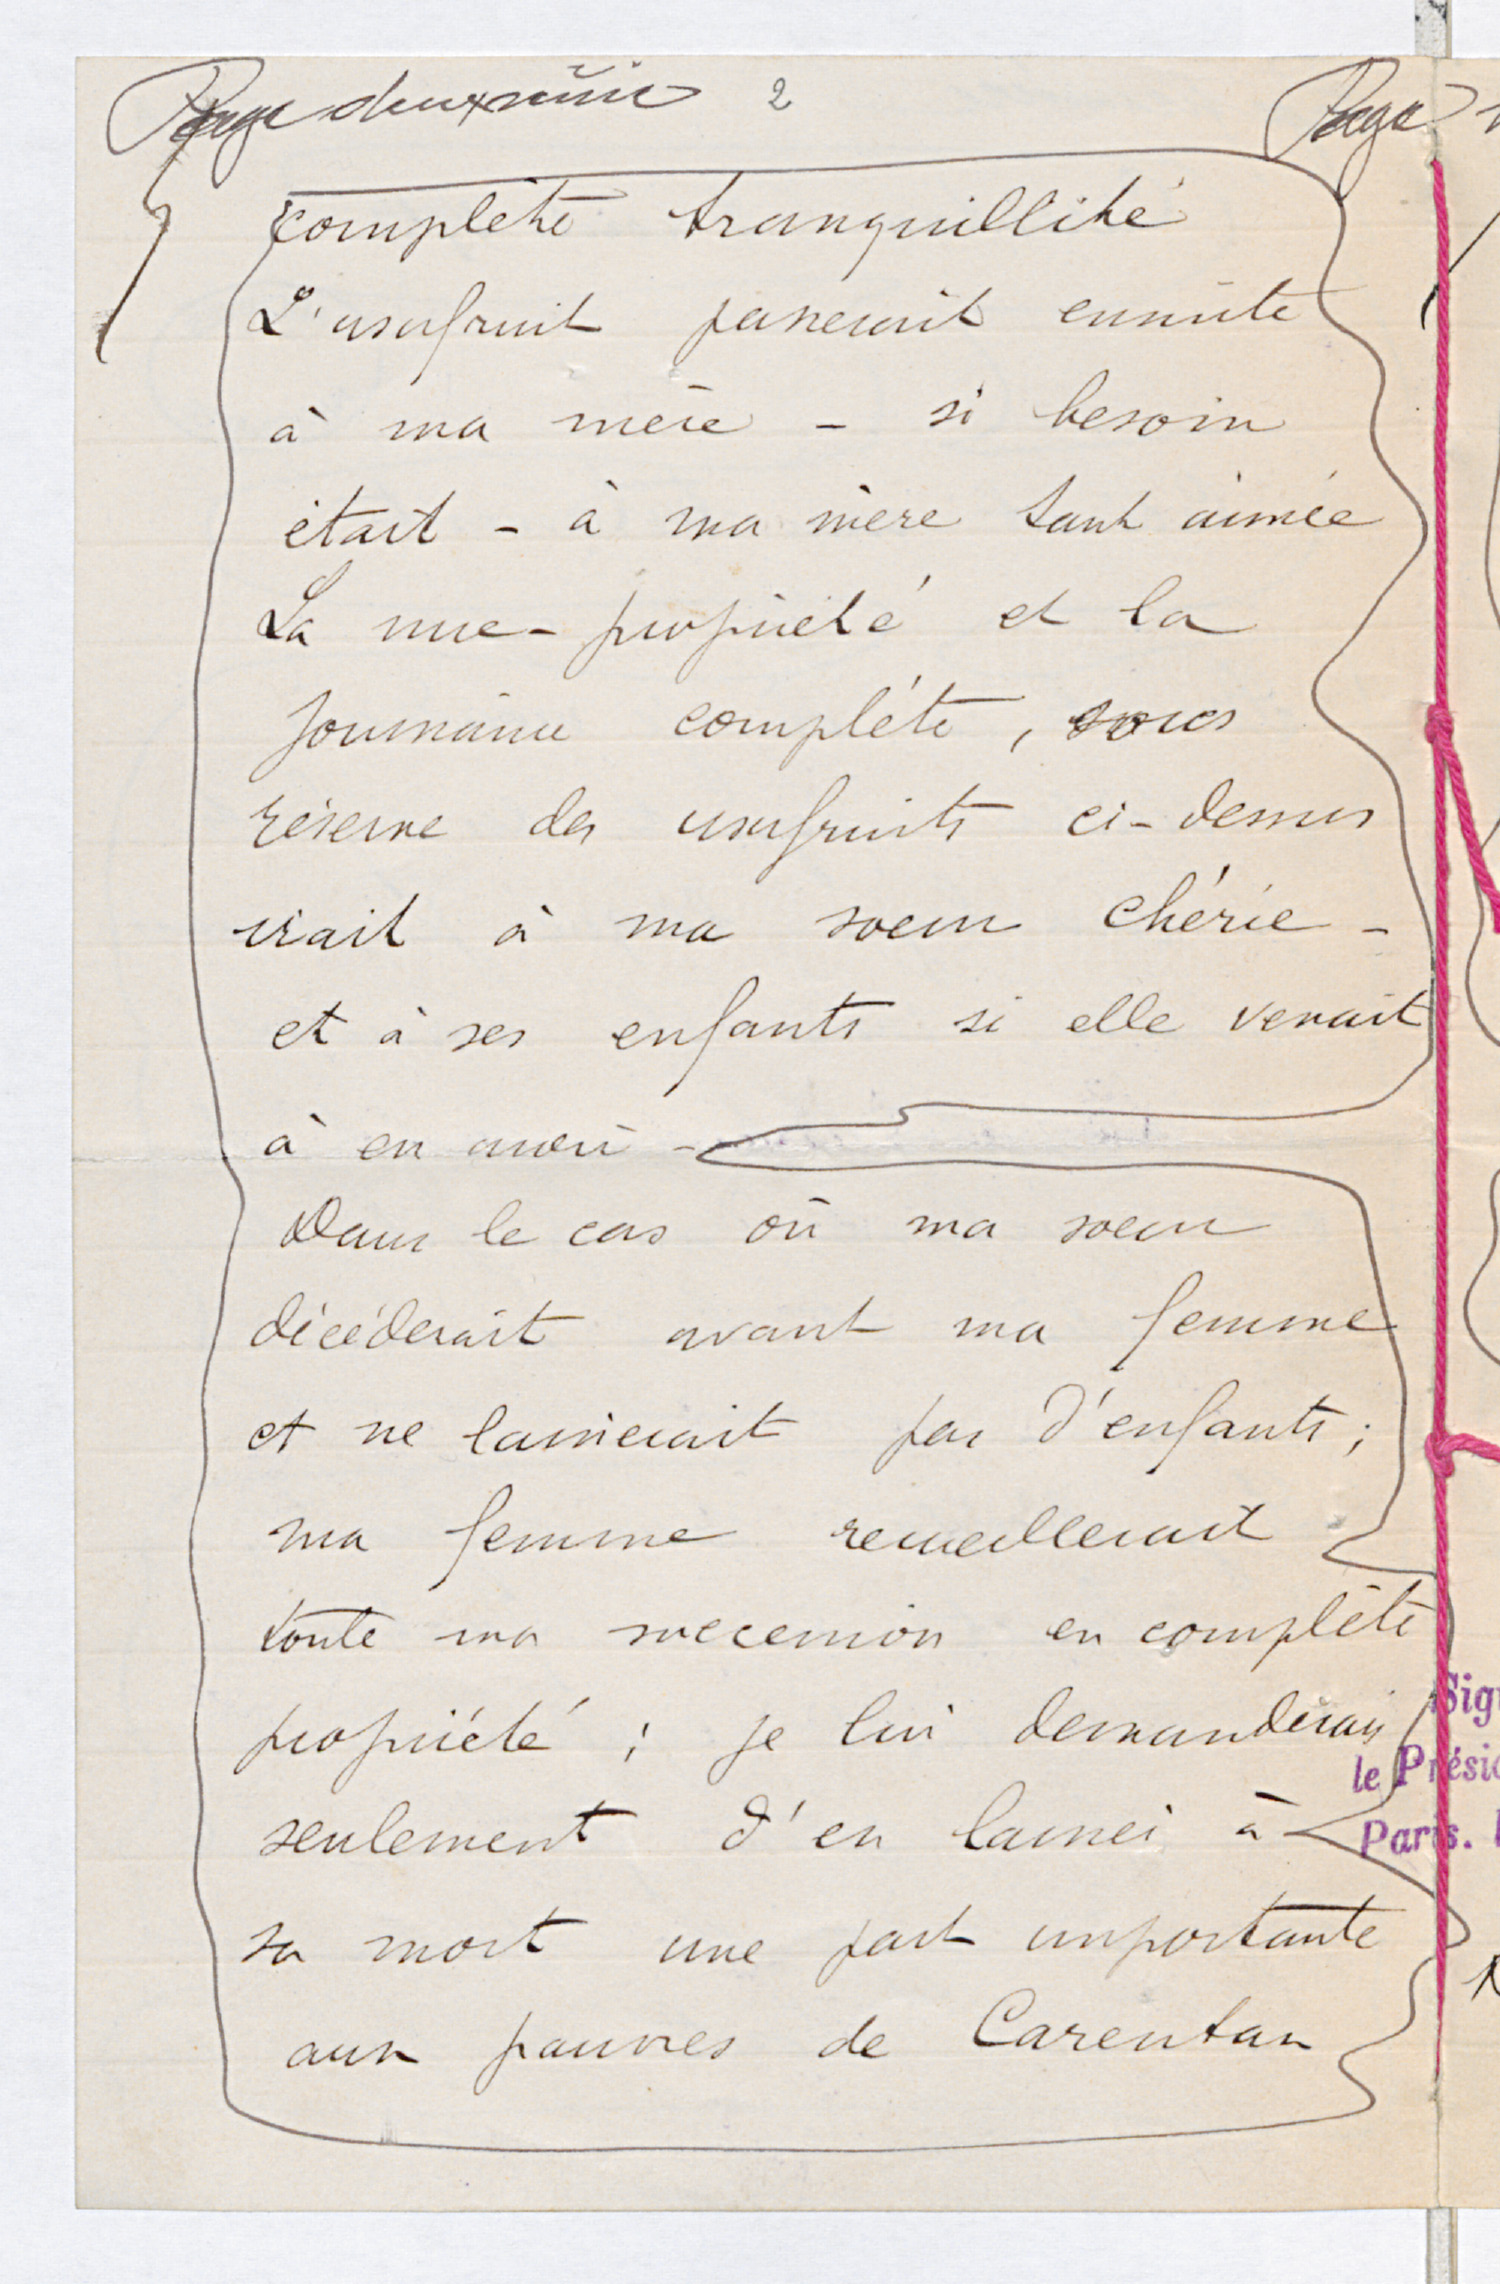 Page deuxième 2
Page
complète tranquillité
L'usufruit passerait ensuite
à ma mère - si besoin
était - à ma mère tant aimée
La nue-propriété et la
jouissance complète, sous
réserve des usufruits ci-dessus
irait à ma soeur chérie -
et à ses enfants si elle venait
à en avoir -
Dans le cas où ma soeur
décéderait avant ma femme
et ne laisserait pas d'enfants ;
ma femme recueillerait
toute ma succession en complète
propriété ; je lui demanderais
seulement d'en laisser à
sa mort une part importante
aux pauvres de Carentan
Sig
le Prési
Paris.